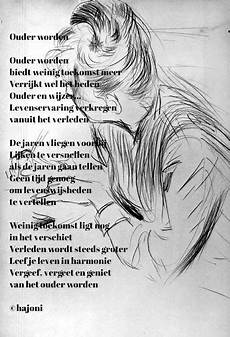 Ouder worden
Ouder worden
biedt weinig toekomst meer
Verrijkt wel het heden
Ouder en wijzer...
Levenservaring verkregen
vanuit het verleden
De jaren vliegen voorbij
Lijken te versnellen
als de jaren gaan tellen
Geen tijd genoeg
om levenswijsheden
te vertellen
Weinig toekomst ligt nog
in het verschiet
Verleden wordt steeds groter
Leef je leven in harmonie
Vergeef, vergeet en geniet
van het ouder worden
©hajoni